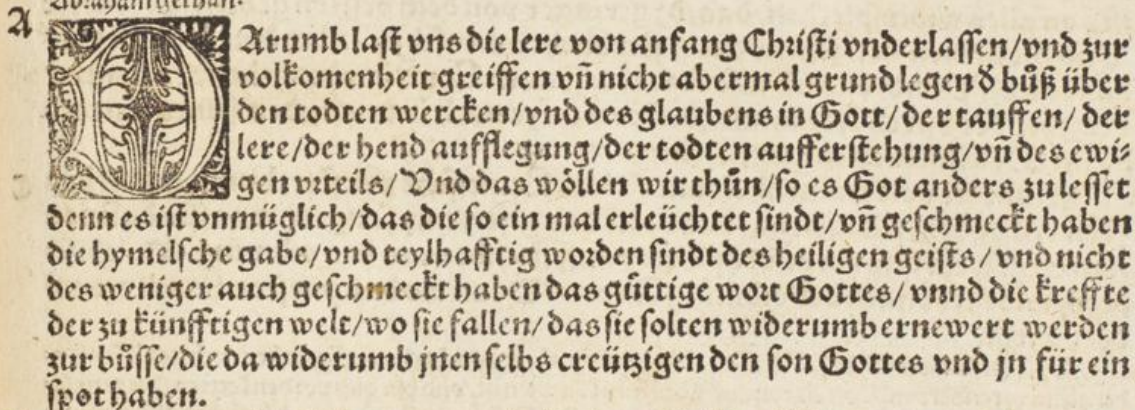 Abraham gethan.
A
DArumb last vns die lere von anfang Christi vnderlassen/vnd zur
volkomenheit greiffen vñ nicht abermal grund legen ð bůß über
den todten wercken/vnd des glaubens in Gott/der tauffen/ der
lere/der hend aufflegung/der todten aufferstehung/vñ des ewi-
gen vrteils/Vnd das wöllen wir thůn/so es Got anders zu lesset
denn es ist vnmüglich/das die so ein mal erleüchtet sindt/vñ geschmeckt haben
die hymelsche gabe/vnd teylhafftig worden sindt des heiligen geists/vnd nicht
des weniger auch geschmeckt haben das güttige wort Gottes/ vnnd die kreffte
der zu künfftigen welt/wo sie fallen/das sie solten widerumb ernewert werden
zur bůsse/die da widerumb jnen selbs creützigen den son Gottes vnd jn für ein
spot haben.